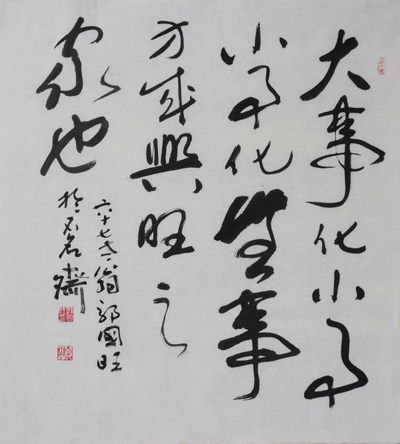 大事化小事
小事化無事
方成興旺之
家也
六十七岁翁郭國旺
於不名齋